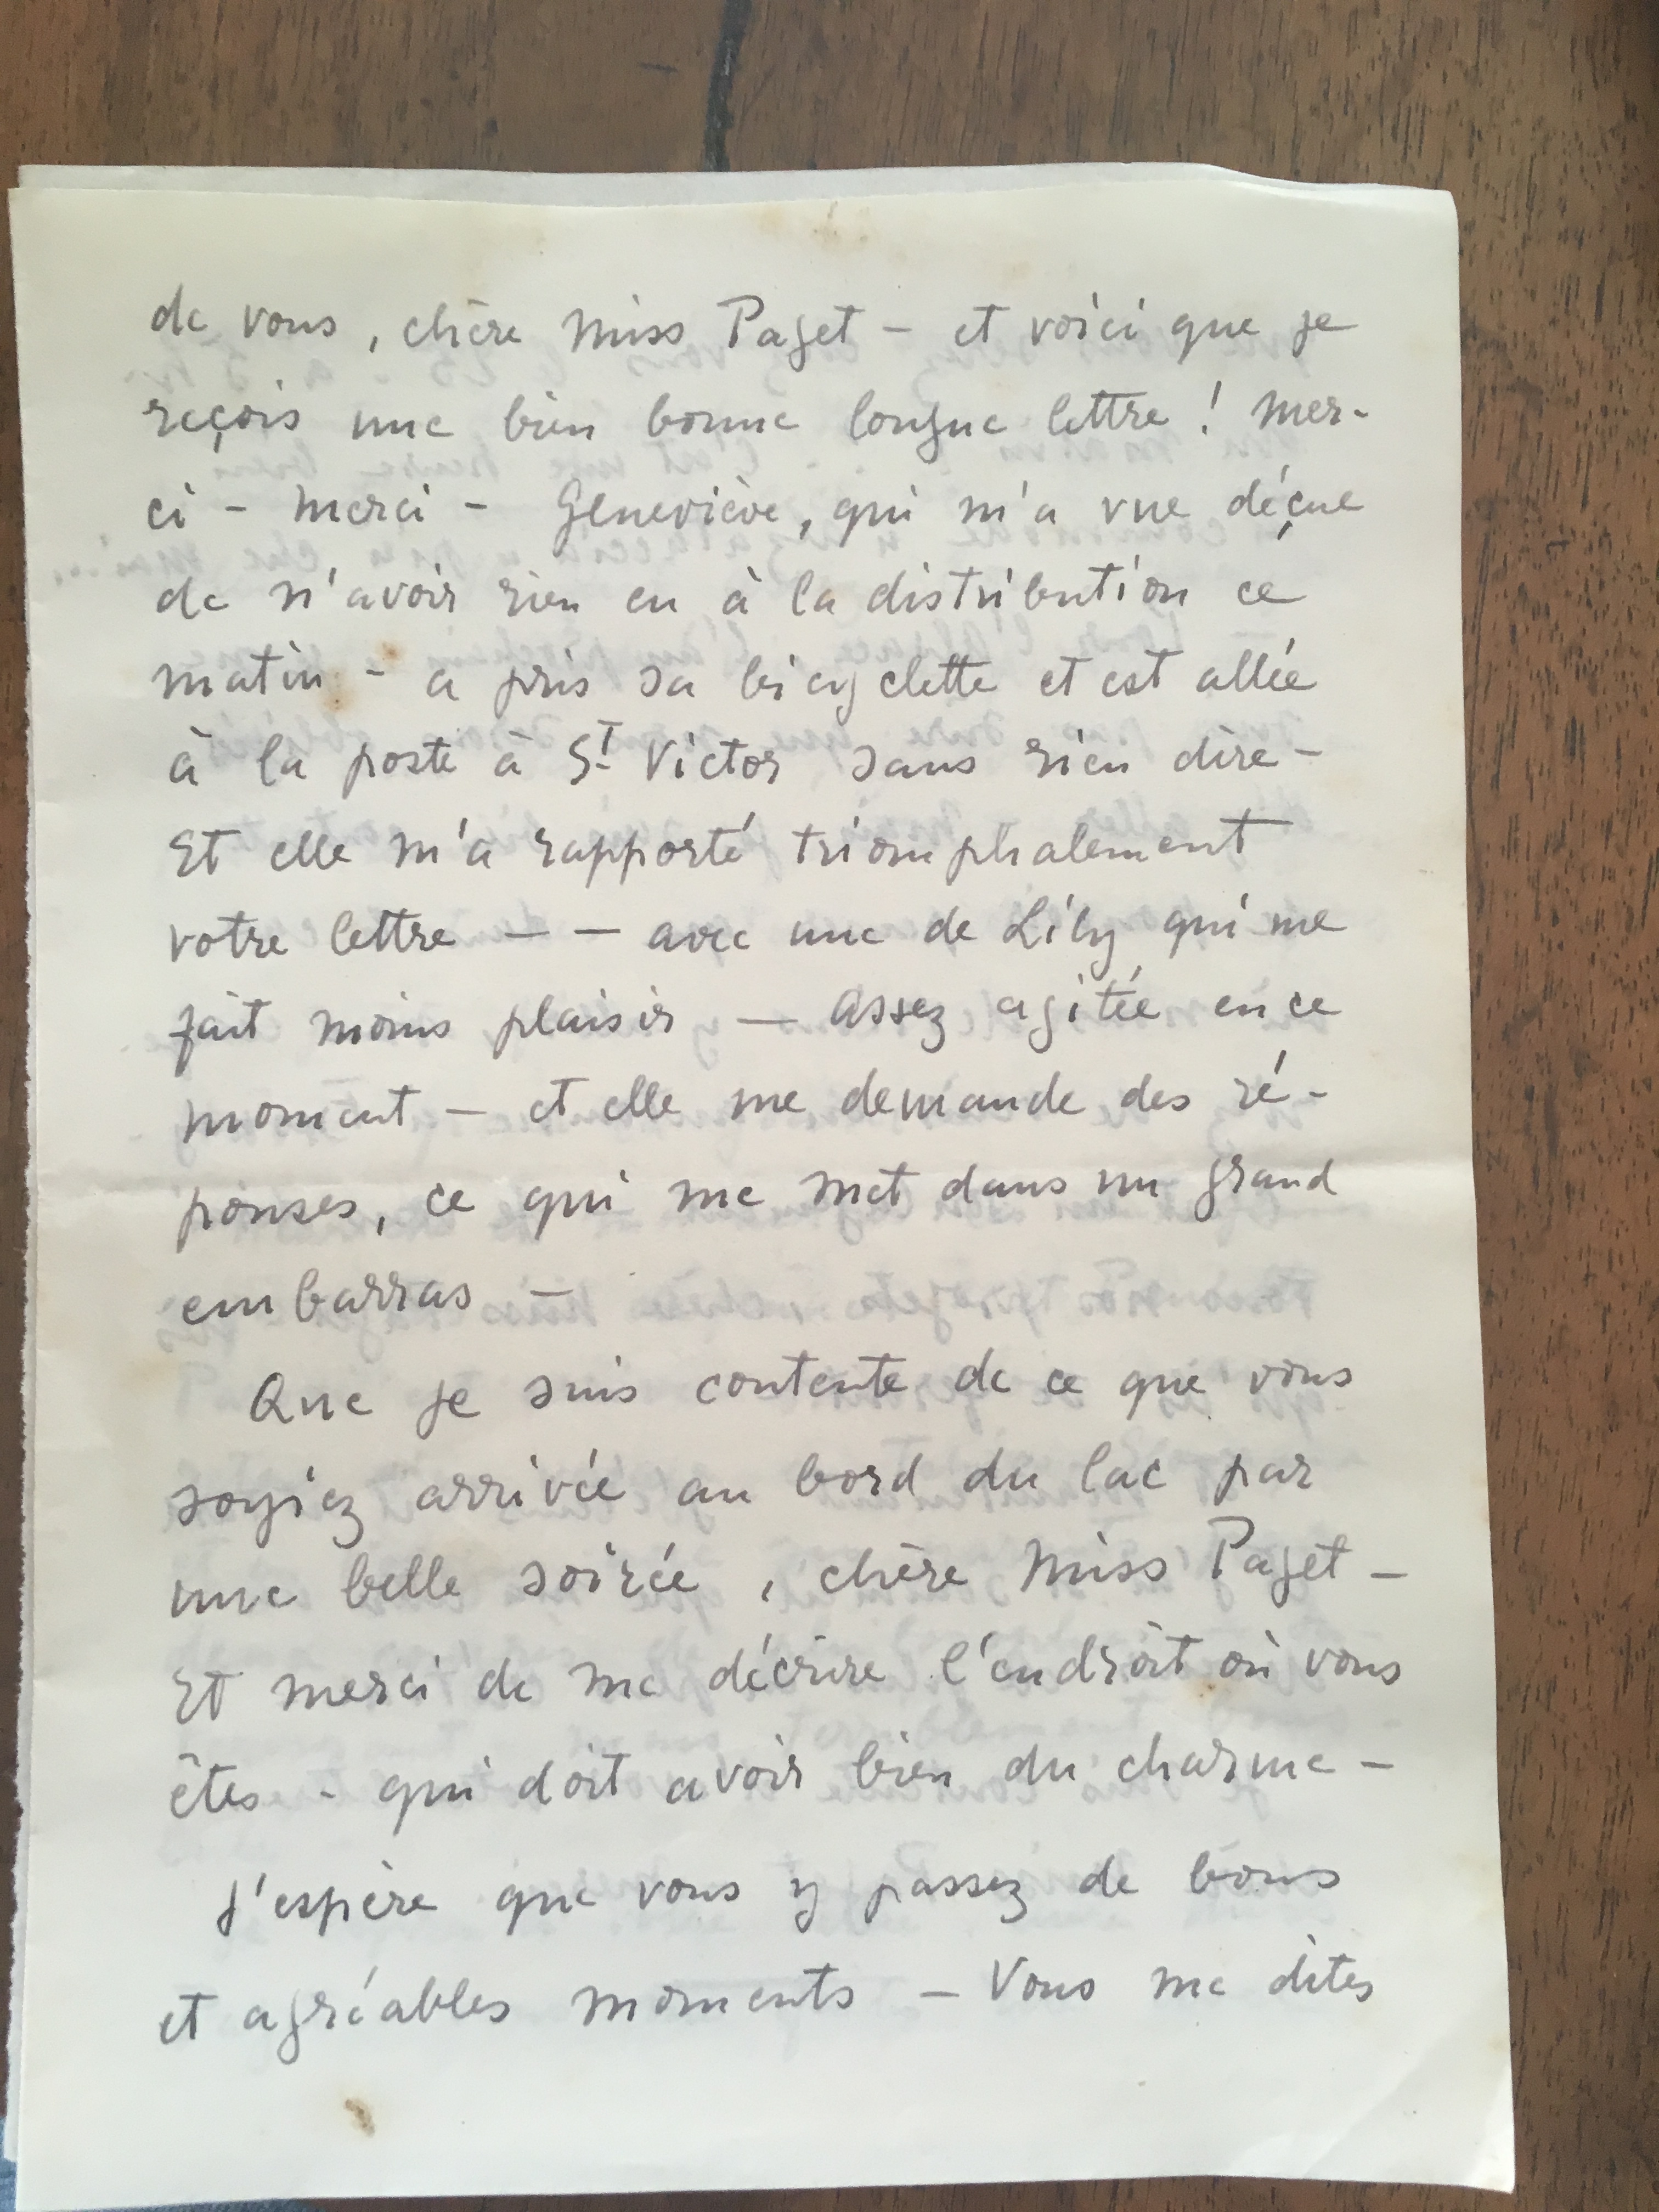 de vous, chère Miss Paget - et voici que je
reçois une bien bonne longue lettre ! Mer-
ci - merci - Geneviève, qui m'a vue déçue
de n'avoir rien eu à la distribution ce
matin - a pris sa bicyclette et est allée
à la poste à St Victor sans rien dire -
Et elle m'a rapporté triomphalement
votre lettre - - avec une de Lily qui me
fait moins plaisir - Assez agitée en ce
moment - et elle me demande des ré-
ponses, ce qui me met dans un grand
embarras -
Que je suis contente de ce que vous
soyiez arrivée au bord du lac par
une belle soirée, chère Miss Paget -
Et merci de me décrire l'endroit où vous
êtes - qui doit avoir bien du charme -
J'espère que vous y passez de bons
et agréables moments - Vous me dites